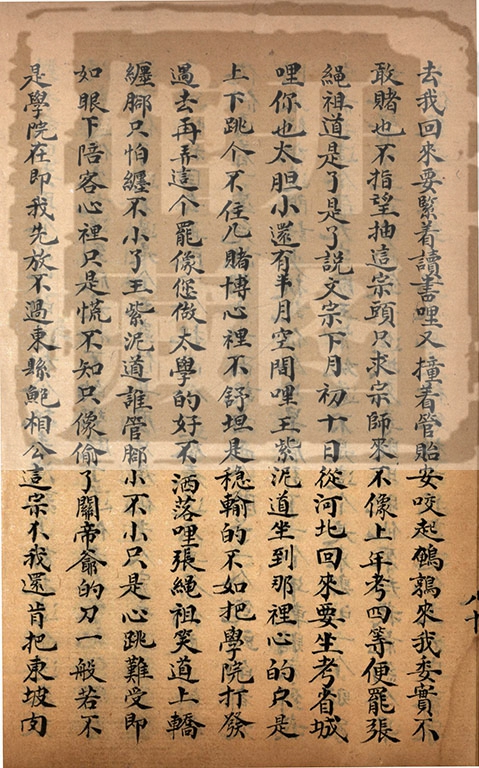 去我回來要緊着讀書哩又撞着管貽安咬起鵪鶉來我委實不
敢賭也不指望抽這宗頭只求宗師來不像上年考四等便罷張
繩祖道是了是了説文宗下月初十日從河北回來要坐考省城
哩你也太胆小還有半月空閒哩王紫泥道坐到那裡心的只是
上下跳个不住凢賭博心裡不舒坦是稳輸的不如把學院打發
過去再弄這个罷像您做太學的好不洒落哩張繩祖笑道上轎
纏脚只怕纏不小了王紫泥道誰管脚小不小只是心跳難受即
如眼下陪客心裡只是慌不知只像偷了關帝爺的刀一般若不
是學院在即我先放不過東縣鮑相公這宗不我還肯把東坡肉
八十